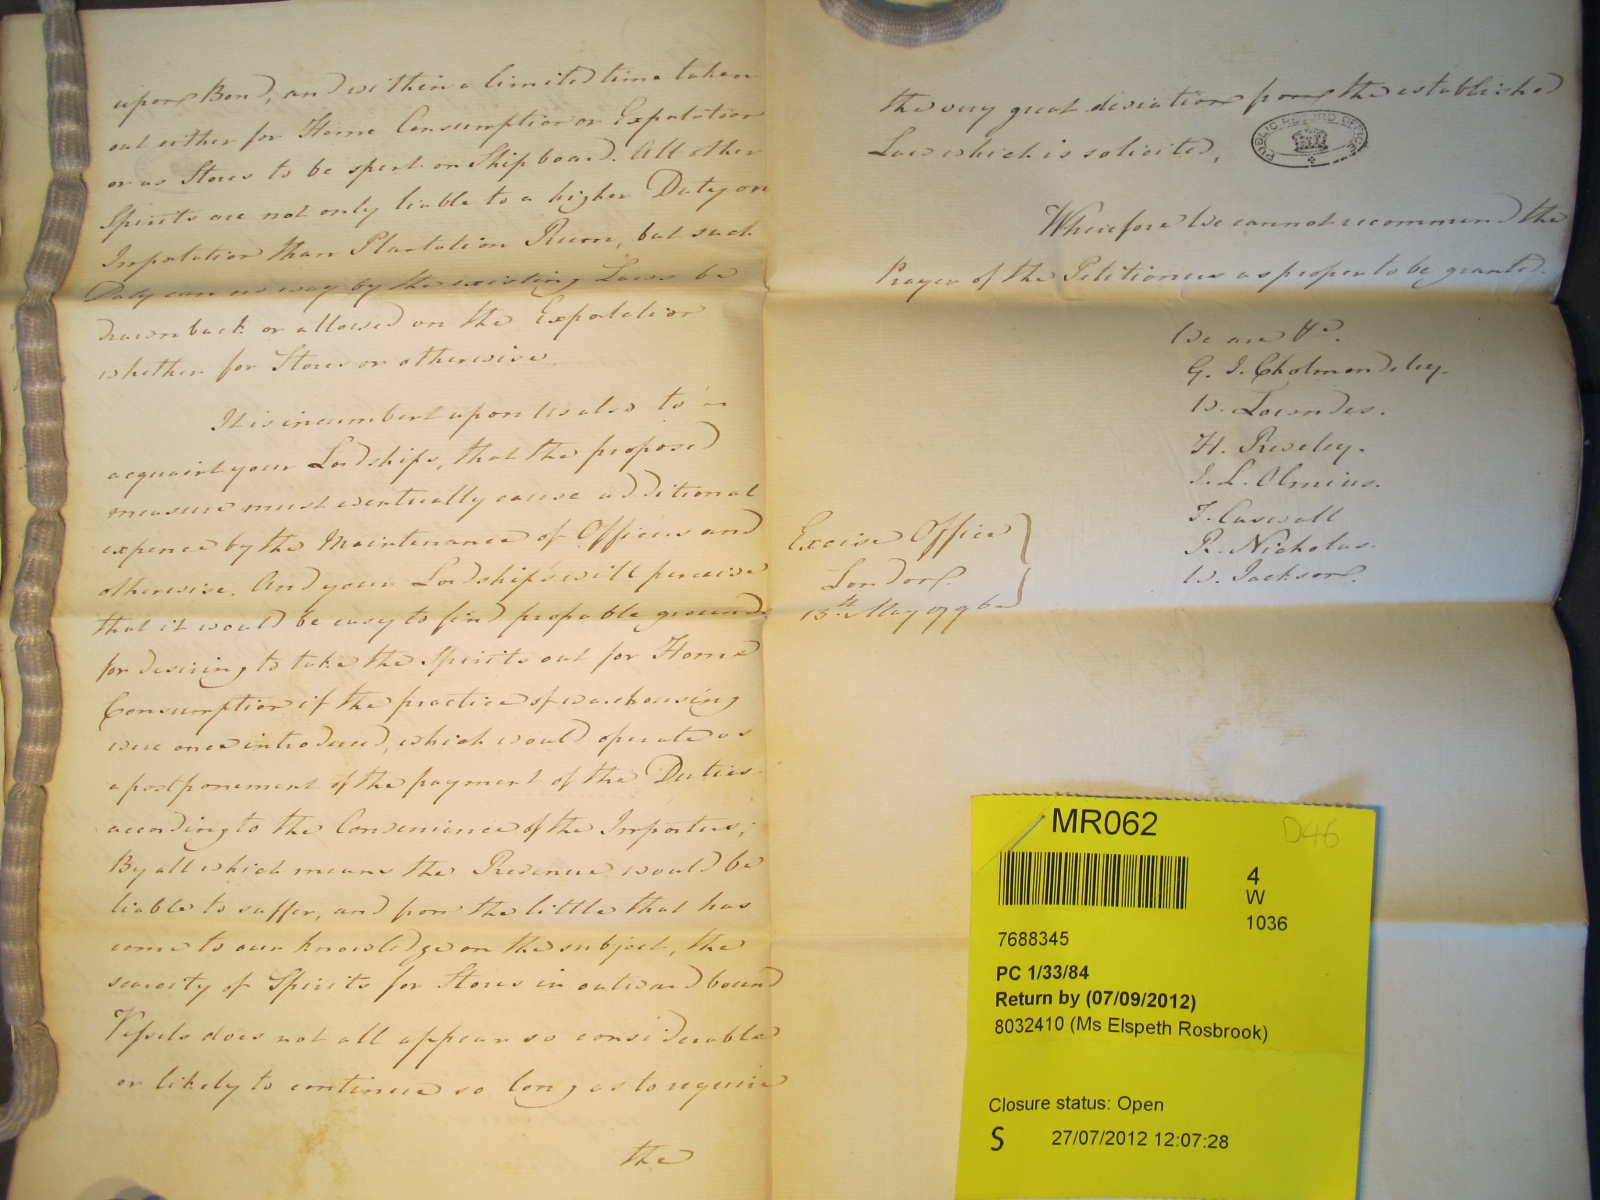 upon Bond, and within a limited time taken
out either for Home Consumption or Exportation
or as Stores to be spent on Ship board. All other
Spirits are not only liable to a higher Duty on
Importation than Plantation Rum, but such
Duty can no way by the existing Laws be
drawn back or allowed on the Exportation
whether for Stores or otherwise.
It is incumbent upon Us also to
acquaint your Lordships, that the proposed
measure must eventually cause additional
expence by the Maintenance of Officers and
otherwise. And your Lordships will perceive
that it would be easy to find probable ground
for desiring to take the Spirits out for Home
Consumption if the practice of warehousing
were once introduced, which would operate as
a postponement of the payment of the Duties
according to the Convenience of the Importers;
By all which means the Revenue would be
liable to suffer, and from the little that has
come to our knowledge on the subject, the
scarcity of Spirits for Stores in outward bound
Vessels does not all appear so considerable
or likely to continue so long as to require
the
the very great deviation from the established
Law which is solicited,
PUBLIC RECORD OFFICE
Wherefore We cannot recommend the
Prayer of the Petitioners as proper to be granted.
We are &c.
G. J. Cholmondeley.
W. Lowndes.
H. Reveley.
J. L. Olmius.
T. Caswall
R. Nicholas.
W. Jackson.
Excise Office
London.
13th May 1796
MR062
D46
4
W
1036
7688345
PC 1/33/84
Return by (07/09/2012)
8032410 (Ms Elspeth Rosbrook)
Closure status: Open
S 27/07/2012 12:07:28